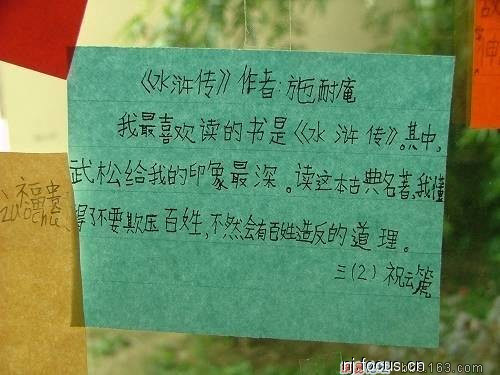 《水浒传》作者:施耐庵
我最喜欢读的书是《水浒传》。其中,
武松给我的印象最深。读这本古典名著,我懂
得了不要欺压百姓,不然会有百姓造反的道理。
三(2) 祝云篪
nj.focus.cn